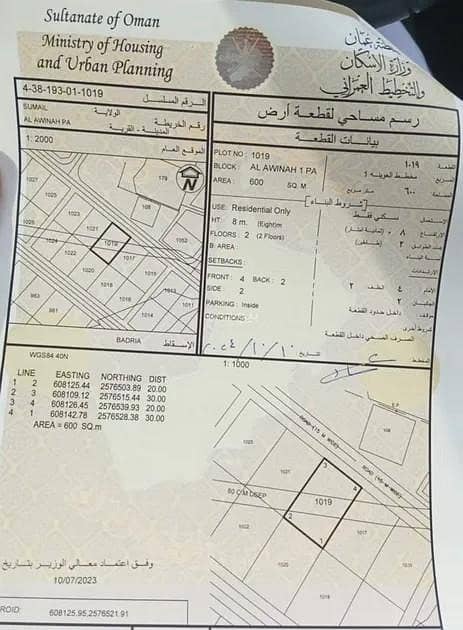 Sultanate of Oman
Ministry of Housing
and Urban Planning
وزارة الإسكان
والتخطيط العمراني
4-38-193-01-1019
الرقم المسلسل
SUMAIL
الولاية
AL AWINAH PA
رقم الخريطة
المدينة - القرية
1: 2000
الموقع العام
N
1027
1025
1023
1021
1019
1017
1015
1024
1022
1020
1018
1016
1014
1013
1011
1032
179
108
983
981
BADRIA
رسم مساحي لقطعة أرض
بيانات القطعة
PLOT NO : 1019
القطعة ١٠١٩
BLOCK : AL AWINAH 1 PA
المربع مخطط العوينة ١
AREA : 600 SQ. M
٦٠٠ متر مربع
[شروط البناء]
USE: Residential Only
الاستعمال سكني فقط
HT: 8 m. (Eight)m
الارتفاع ٨ (ثمانية امتار)
FLOORS : 2 (2 Floors)
عدد الطوابق ٢ (طابقين)
B. AREA:
SETBACKS:
الارتدادات
FRONT : 4 BACK : 2
الامام ٤ الخلف ٢
SIDE : 2
الجانبان ٢
PARKING : Inside
داخل حدود القطعة
CONDITIONS :
شروط أخرى
الصرف الصحي داخل القطعة
الإسقاط
٢٠٢٤/١٠/١٠
التاريخ
المخطط
WGS84 40N
1: 1000
LINE EASTING NORTHING DIST
1 2 608125.44 2576503.89 20.00
2 3 608109.12 2576515.44 30.00
3 4 608126.45 2576539.93 20.00
4 1 608142.78 2576528.38 30.00
AREA = 600 SQ.m
ROAD (15 M WIDE)
ROAD (15 M WIDE)
108
1023
1021
3
4
60 C M DEEP
1019
2
1
1022
1017
1020
1018
وفق اعتماد معالي الوزير بتاريخ
10/07/2023
ROID: 608125.95,2576521.91